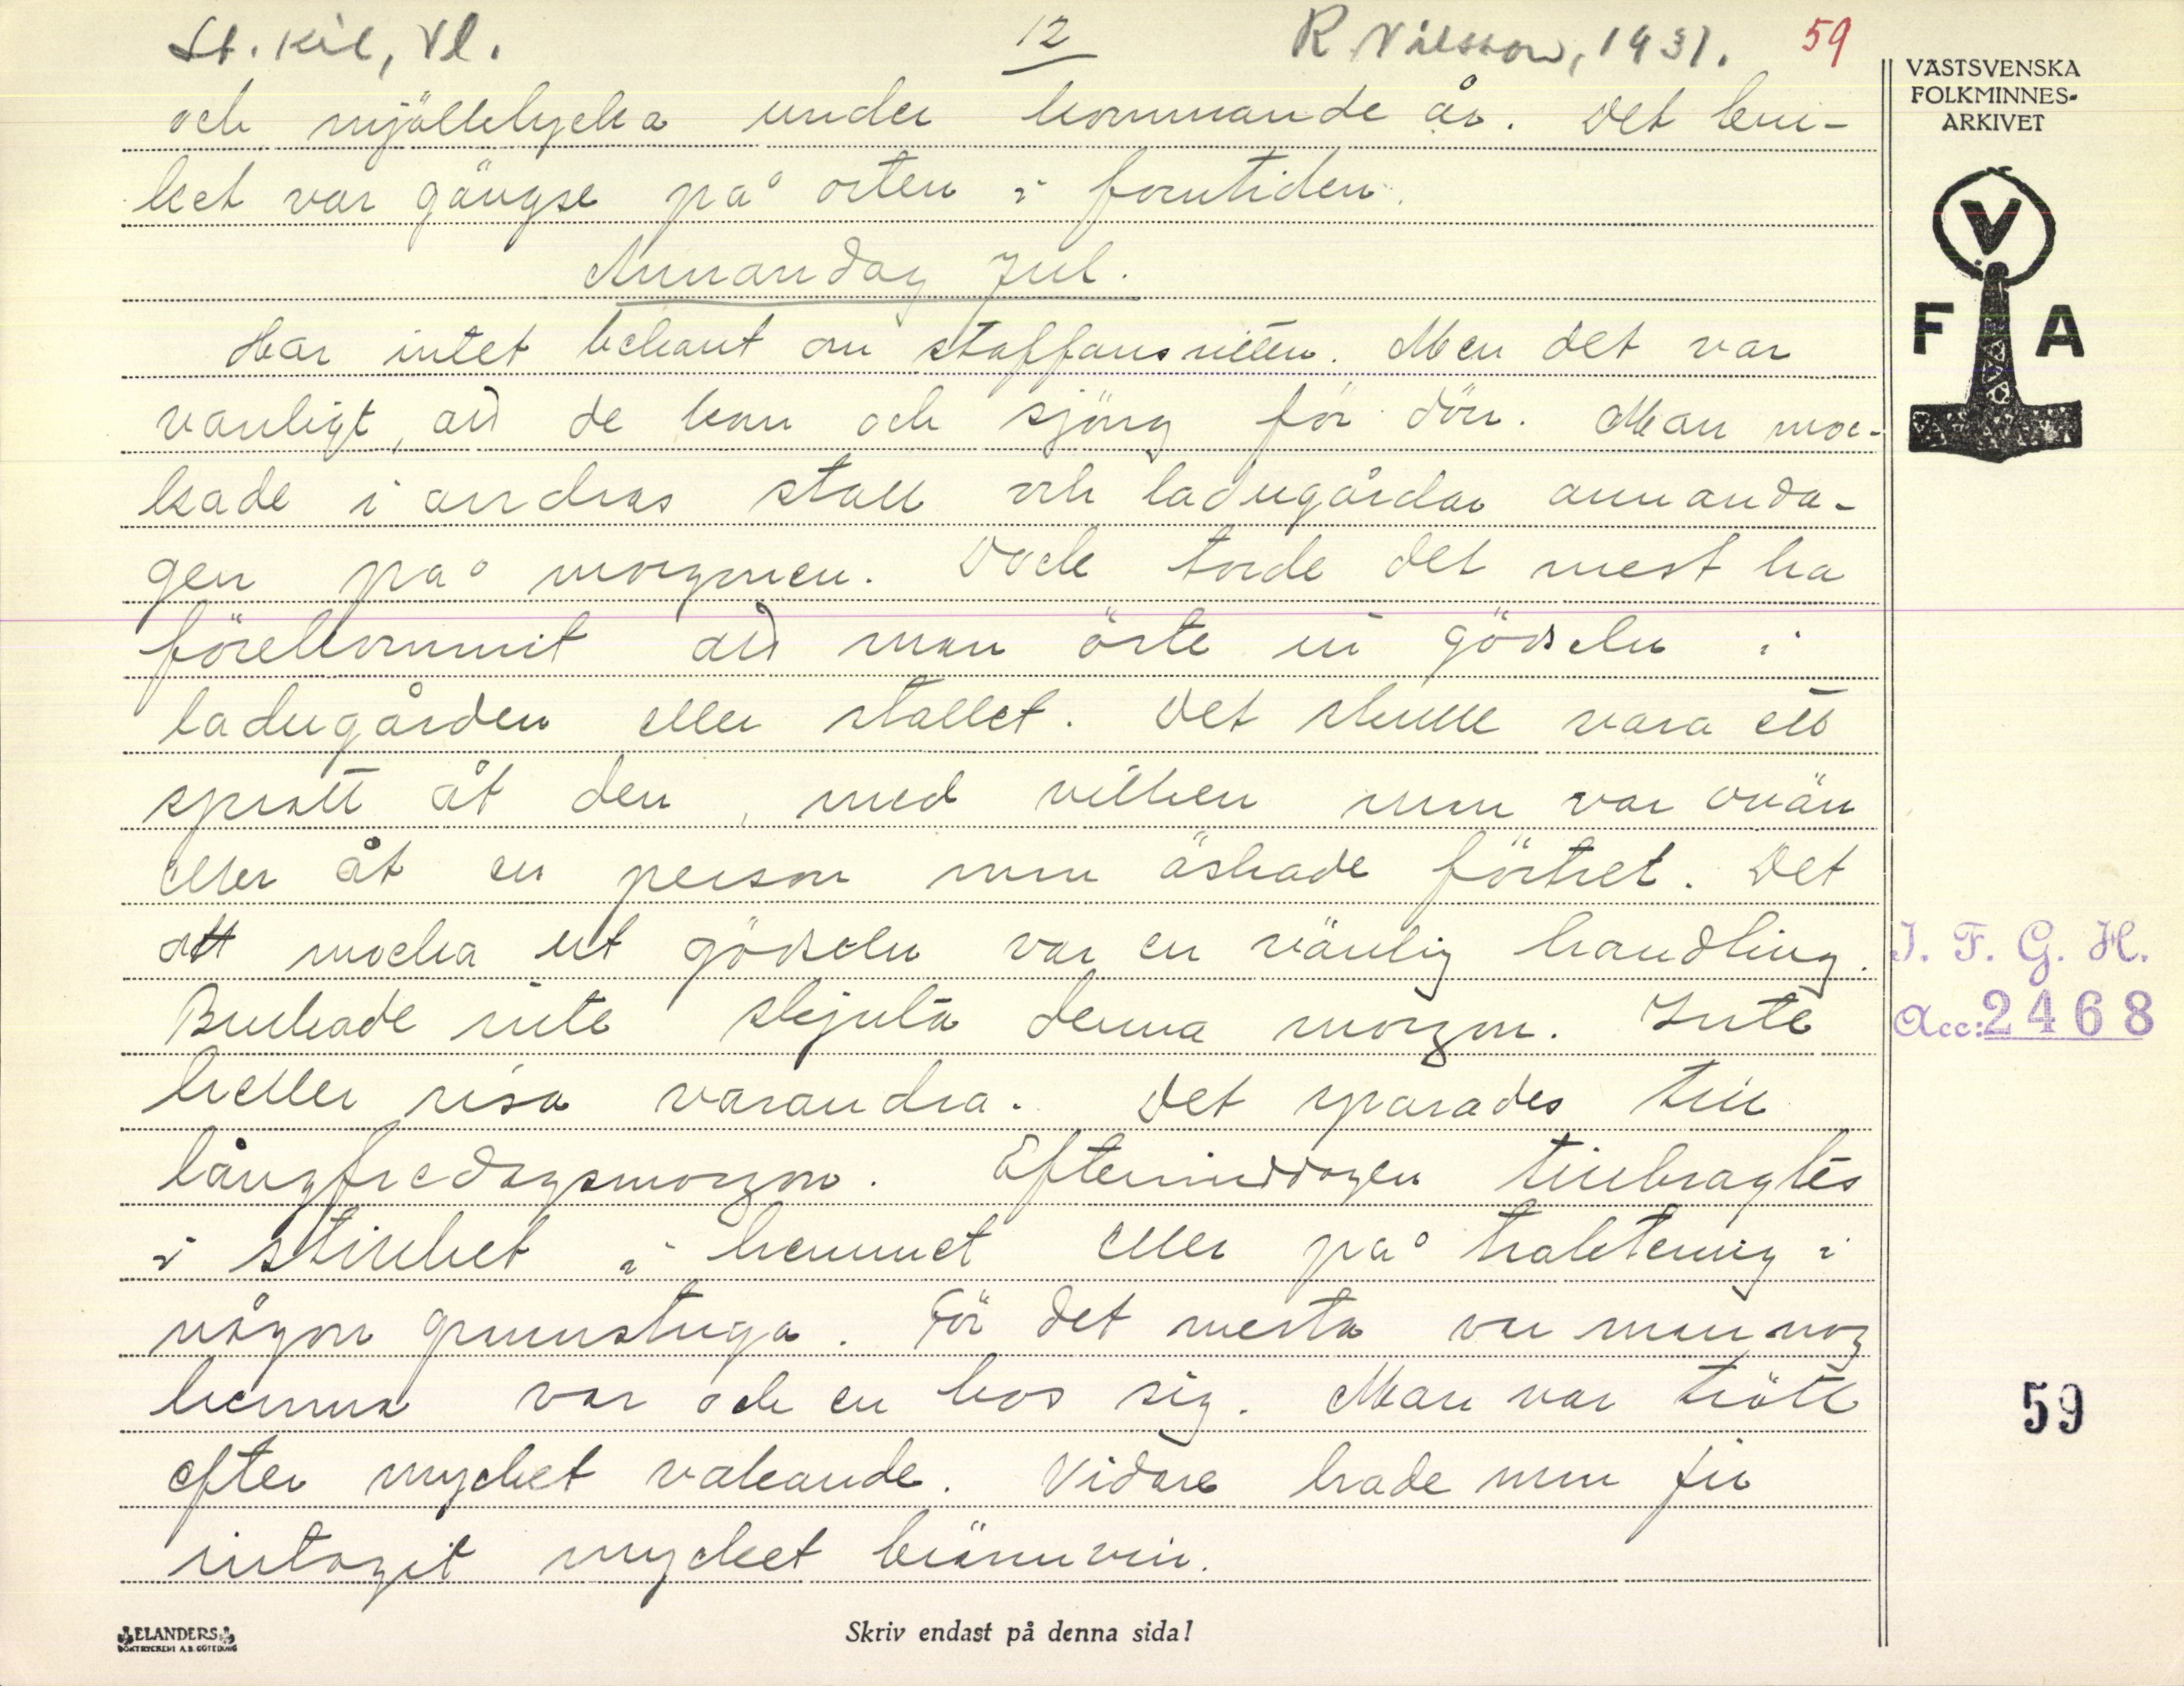 St. Kil, Vl. 12 R Nilsson, 1931. 59
VÄSTSVENSKA
FOLKMINNES-
ARKIVET
V
F A
och mjölklycka under kommande år. Det bru-
ket var gängse på orten i forntiden.
Annandag Jul.
Har intet bekant om staffansritten. Men det var
vanligt, att de kom och sjöng för dörr. Man moc-
kade i andras stall och ladugårdar annanda-
gen på morgonen. Dock torde det mest ha
förekommit att man öste in gödseln i
ladugården eller stallet. Det skulle vara ett
spratt åt den, med vilken man var ovän
eller åt en person man åskade förtret. Det
att mocka ut gödseln var en vänlig handling.
Brukade inte skjuta denna morgon. Inte
heller risa varandra. Det sparades till
långfredagsmorgon. Eftermiddagen tillbragtes
i stillhet i hemmet eller på traktering i
någon grannstuga. För det mesta var man nog
hemma var och en hos sig. Man var trött
efter mycket vakande. Vidare hade man ju
intagit mycket brännvin.
I. F. G. H.
Acc: 2468
59
ELANDERS
BOKTRYCKERI A.B. GÖTEBORG
Skriv endast på denna sida!